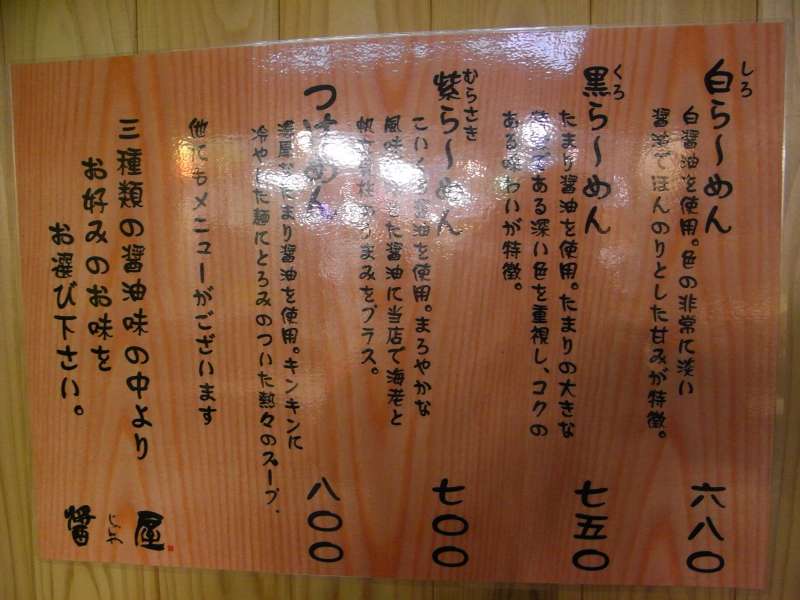 白ら〜めん
しろ
白醤油を使用。色の非常に淡い
醤油でほんのりとした甘みが特徴。
六八〇
黒ら〜めん
くろ
たまり醤油を使用。たまりの大きな
である深い色を重視し、コクの
ある味わいが特徴。
七五〇
紫ら〜めん
むらさき
こいくち醤油を使用。まろやかな
風味 た醤油に当店で海老と
うまみをプラス。
七〇〇
つけめん
濃厚なたまり醤油を使用。キンキンに
冷やした麺にとろみのついた熱々のスープ.
八〇〇
他にもメニューがございます
三種類の醤油味の中より
お好みのお味を
お選び下さい。
醤屋